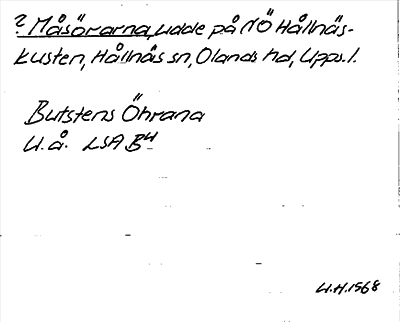 ? Måsörarna, udde på NÖ Hållnäs-
kusten, Hållnäs sn, Olands hd, Upps. l.
Butstens Öhrana
U.å. LSA B4
U.H. 1968